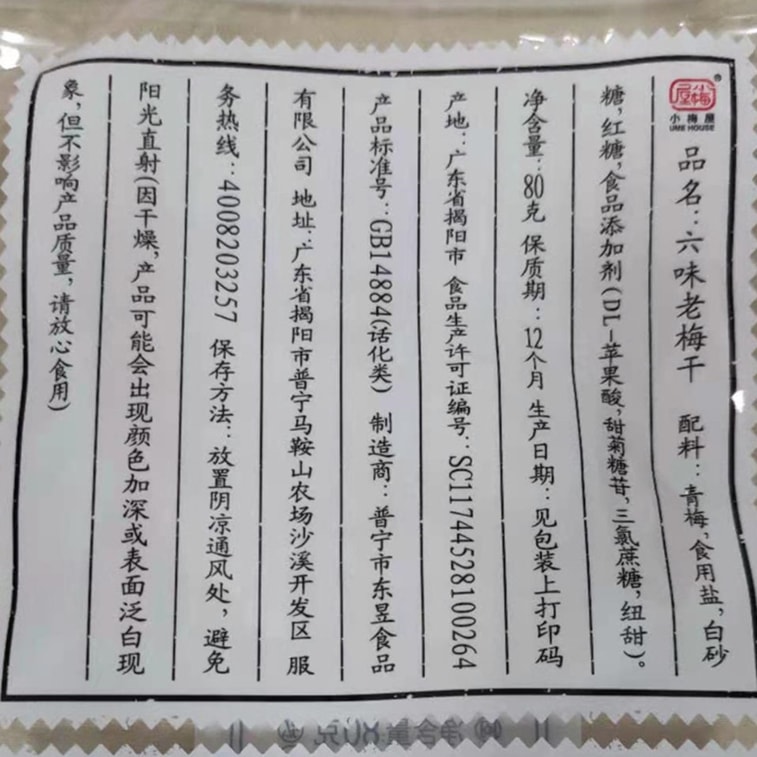 梅屋®
小梅屋
UME HOUSE
品名：六味老梅干 配料：青梅，食用盐，白砂
糖，红糖，食品添加剂(DL-苹果酸，甜菊糖苷，三氯蔗糖，纽甜)。
净含量：80克 保质期：12个月 生产日期：见包装上打印码
产地：广东省揭阳市 食品生产许可证编号：SC11744528100264
产品标准号：GB14884(话化类) 制造商：普宁市东昱食品
有限公司 地址：广东省揭阳市普宁马鞍山农场沙溪开发区 服
务热线：4008203257 保存方法：放置阴凉通风处，避免
阳光直射(因干燥，产品可能会出现颜色加深或表面泛白现
象，但不影响产品质量，请放心食用)
净含量80克